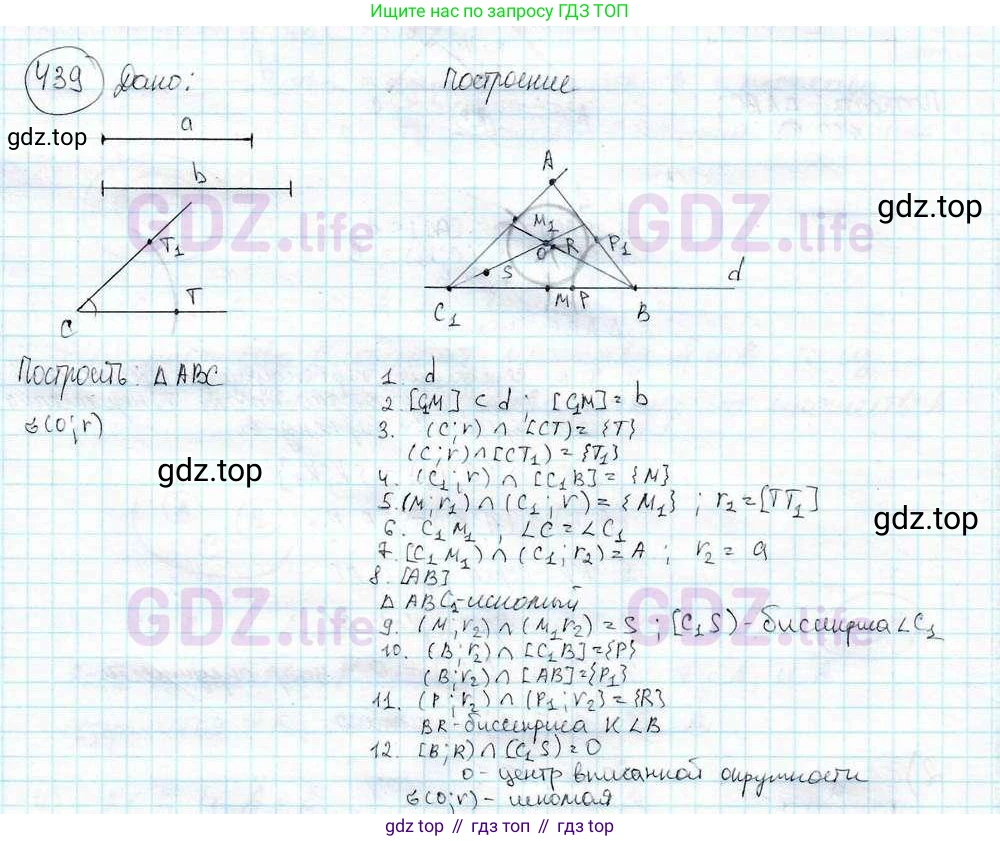 Ищите нас по запросу ГДЗ ТОП
439 Дано:
Построение
gdz.top
a
b
GDZ.life
T1
T
C
A
M1
O
R
P1
S
d
C1
M
P
B
GDZ.life
gdz.top
Построить: Δ ABC
в(O;r)
gdz.top
1. d
2. [C1M] ⊂ d ; [C1M] = b
3. (C;r) ∩ [CT) = {T}
(C;r) ∩ [CT1) = {T1}
4. (C1;r) ∩ [C1B] = {M}
5. (M;r1) ∩ (C1;r) = {M1} ; r2 = [TT1]
6. C1M1 ; ∠C = ∠C1
7. [C1M1) ∩ (C1;r2) = A ; r2 = a
8. [AB]
Δ ABC1 - искомый
9. (M;r2) ∩ (M1r2) = S ; [C1S) - биссектриса ∠C1
10. (B;r2) ∩ [C1B] = {P}
(B;r2) ∩ [AB] = {P1}
11. (P;r2) ∩ (P1;r2} = {R}
BR - биссектриса K ∠B
12. [B;R) ∩ [C1S) = O
O - центр вписанной окружности
в(O;r) - искомая
gdz.top
GDZ.life
GDZ.life
gdz top // гдз топ // gdz top